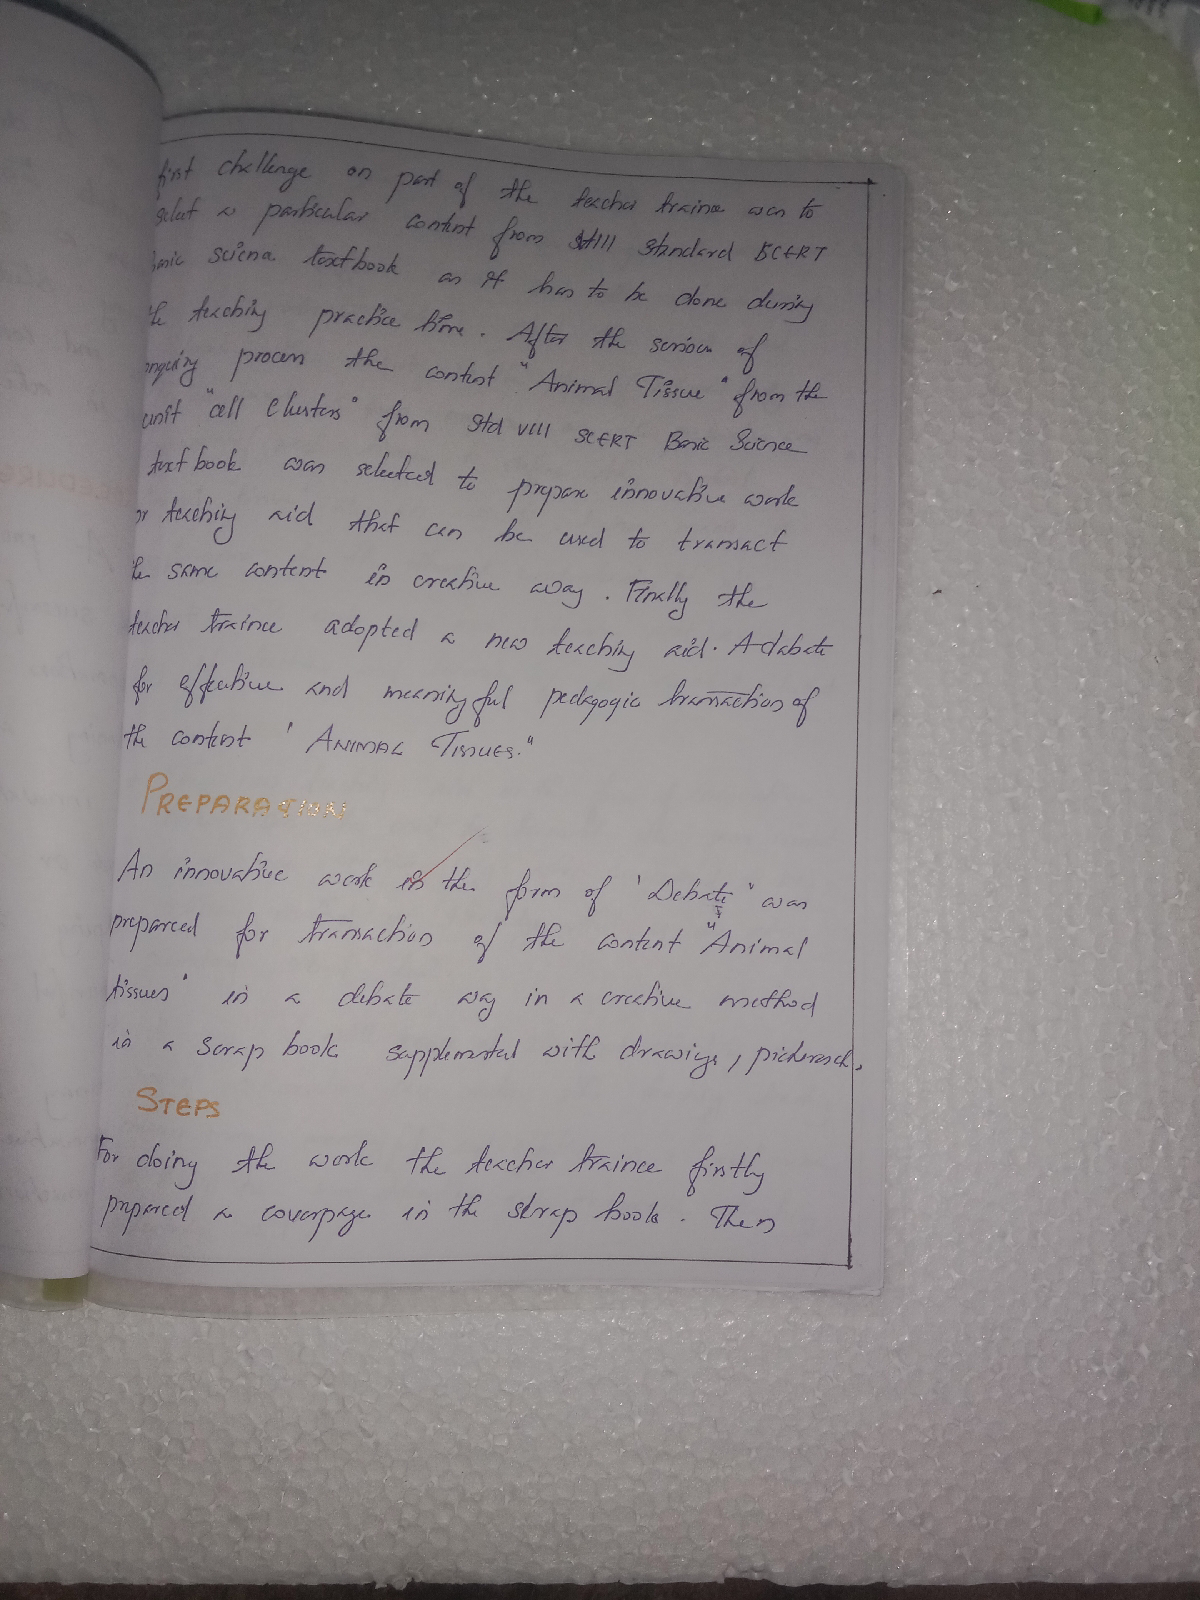 first challenge on part of the teacher trainee was to
select a particular content from standard SCERT
Basic Science textbook as it has to be done during
the teaching practice time. After the serious of
enquiry process the content "Animal Tissue" from the
unit "cell clusters" from Std VIII SCERT Basic Science
textbook was selected to prepare innovative work
or teaching aid that can be used to transact
the same content in creative way. Finally the
teacher trainee adopted a new teaching aid. A debate
for effective and meaningful pedagogic transaction of
the content ' ANIMAL TISSUES."
PREPARATION
An innovative work in the form of 'Debate" was
prepared for transaction of the content "Animal
tissues" in a debate way in a creative method
in a scrap book supplemented with drawings,
STEPS
For doing the work the teacher trainee firstly
prepared a coverpage in the scrap book. Then